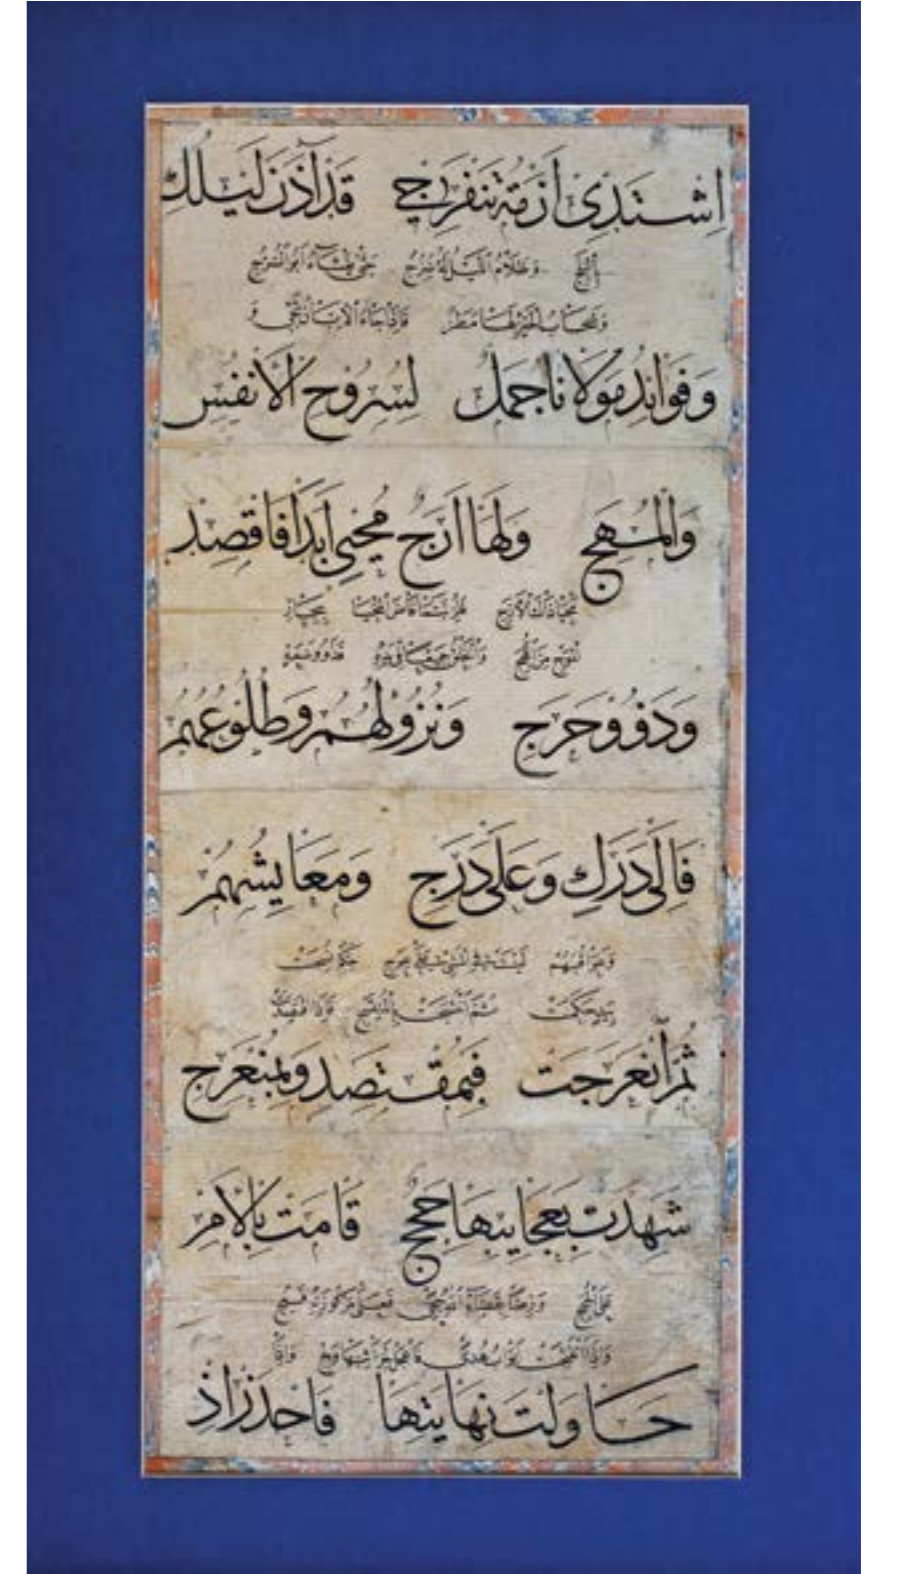 اِشْتَدِّى أَزْمَةُ تَنْفَرِجِى قَدْ آذَنَ لَيْلُكِ
بالبلج وظلام الليل له سرج حتى يغشاه ابو السرج
وسحاب الخير لها مطر فاذا جاء الابان تجى و
وَفَوَائِدُ مَوْلَانَا جُمَلٌ لِسُرُوحِ الْأَنْفُسِ
وَالْمُهَجِ وَلَهَا أَرَجٌ مُحْيِى أَبَدًا فَاقْصِدْ
محيا ذاك الارج فلربتما فاض المحيا ببحار
الموج من اللجج والخلق جميعا فى يده فذوو سعة
وَذَوُو حَرَجٍ وَنُزُولُهُمْ وَطُلُوعُهُمْ
فَإِلَى دَرَكٍ وَعَلَى دَرَجٍ وَمَعَايِشُهُمْ
وعواقبهم ليست فى المشى على عوج حكم نسجت
بيد حكمت ثم انتسجت بالمنتسج فاذا اقتصدت
ثُمَّ انْعَرَجَتْ فَبِمُقْتَصِدٍ وَبِمُنْعَرِجِ
شَهِدَتْ بِعَجَايِبِهَا حُجَجٌ قَامَتْ بِالْأَمْرِ
على الحجج ورضا بقضاء الله حجى فعلى مركوزته فعج
واذا انفتحت ابواب هدى فاعجل لخزائنها ولج واذا
حَاوَلْتَ نِهَايَتَهَا فَاحْذَرْ إِذْ